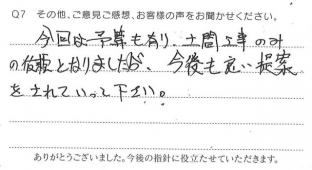 Q7 その他、ご意見ご感想、お客様の声をお聞かせください。
今回は予算も有り、土間工事のみ
の依頼となりましたが、今後も良い提案
をされていって下さい。
ありがとうございました。今後の指針に役立たせていただきます。